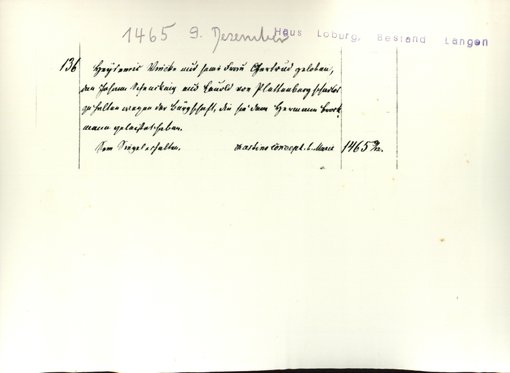 1465 9. Dezember
Haus Loburg, Bestand Langen
136 Heydenric Vincke und seine Frau Gertrud geloben,
den Johann und von Plettenberg schadlos
zu halten wegen der Bürgschaft, die sie dem Hermann Brock-
mann geleistet haben.
Dem Siegel erhalten. crastino concept. b. Marie 1465 Or.